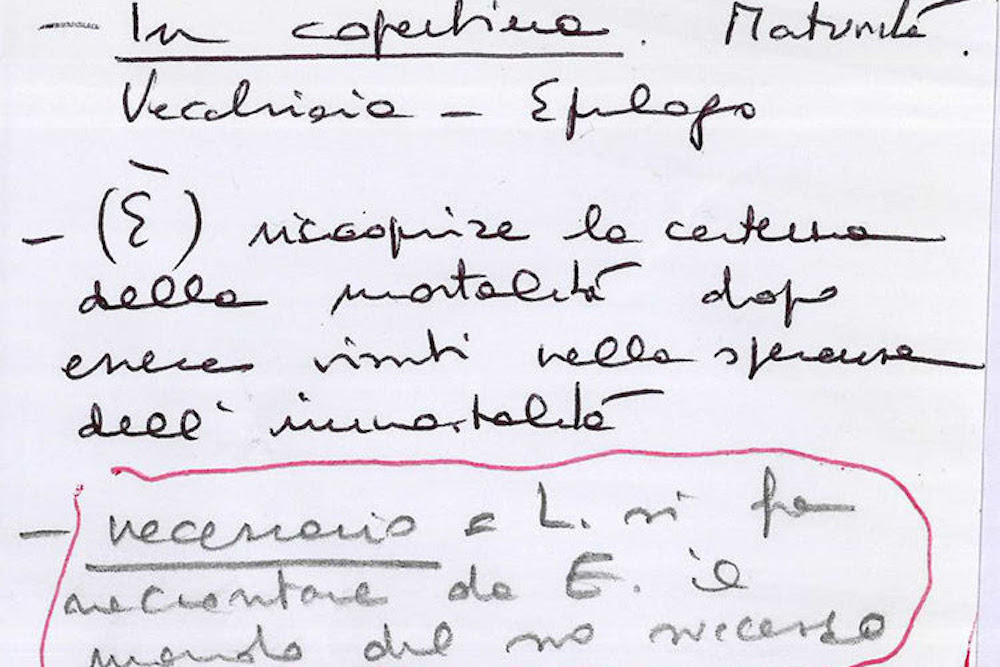 — In copertina. Maturità.
Vecchiaia – Epilogo
– (È) riscoprire la certezza
della mortalità dopo
essere vissuti nella speranza
dell'immortalità
– necessario = L. si fa
raccontare da E. il
mondo del suo successo